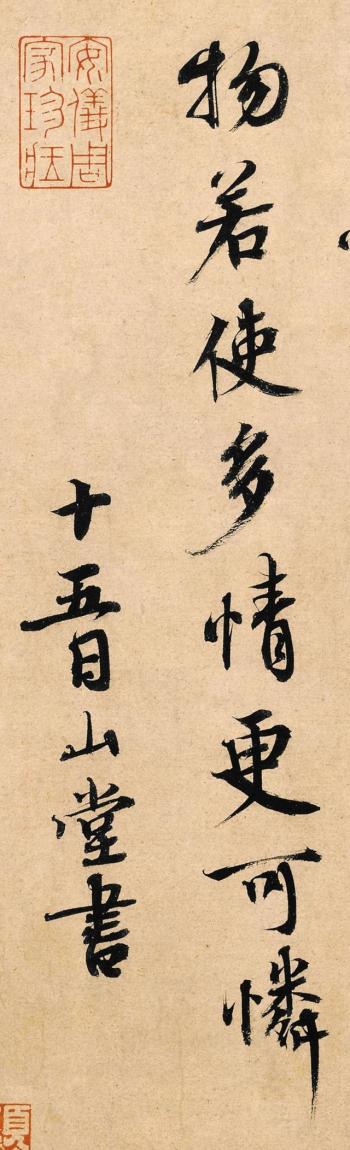 物若使多情更可憐
十五日山堂書
安儀周家珍藏